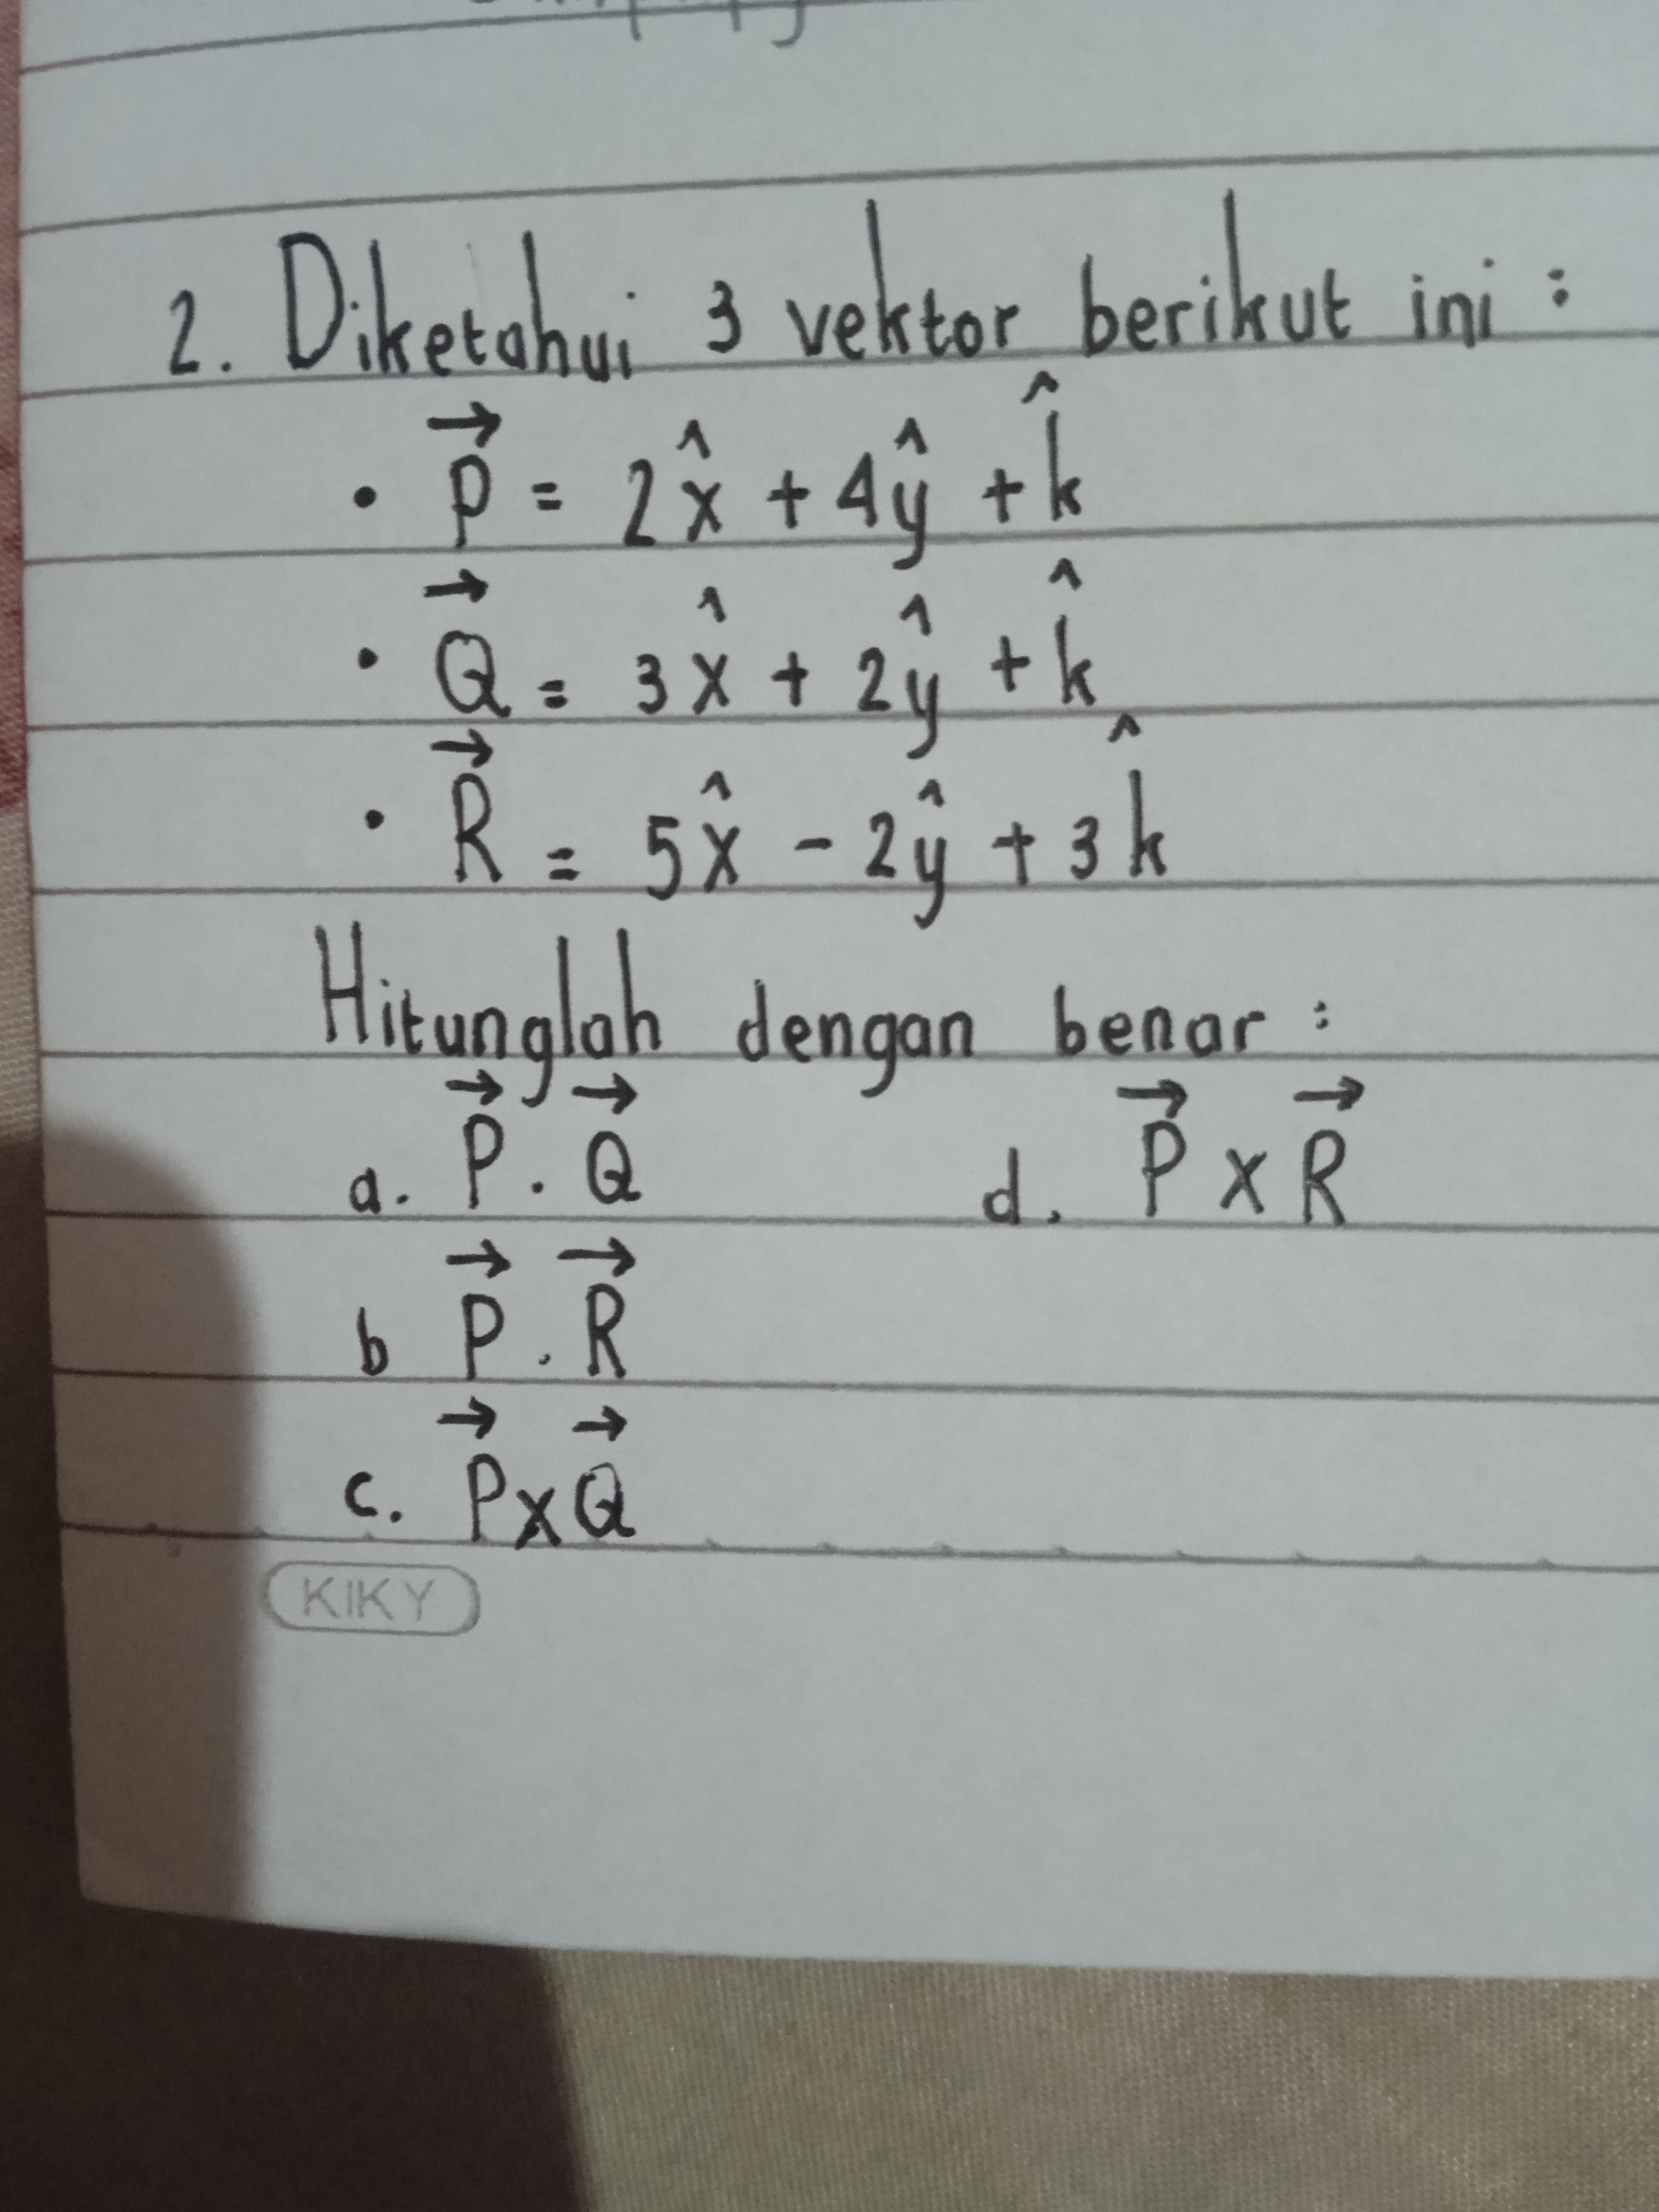 2. Diketahui 3 vektor berikut ini :
• P⃗ = 2x̂ + 4ŷ + k̂
• Q⃗ = 3x̂ + 2ŷ + k̂
• R⃗ = 5x̂ - 2ŷ + 3k̂
Hitunglah dengan benar :
a. P⃗ . Q⃗
b P⃗ . R⃗
c. P⃗ x Q⃗
d. P⃗ x R⃗
KIKY